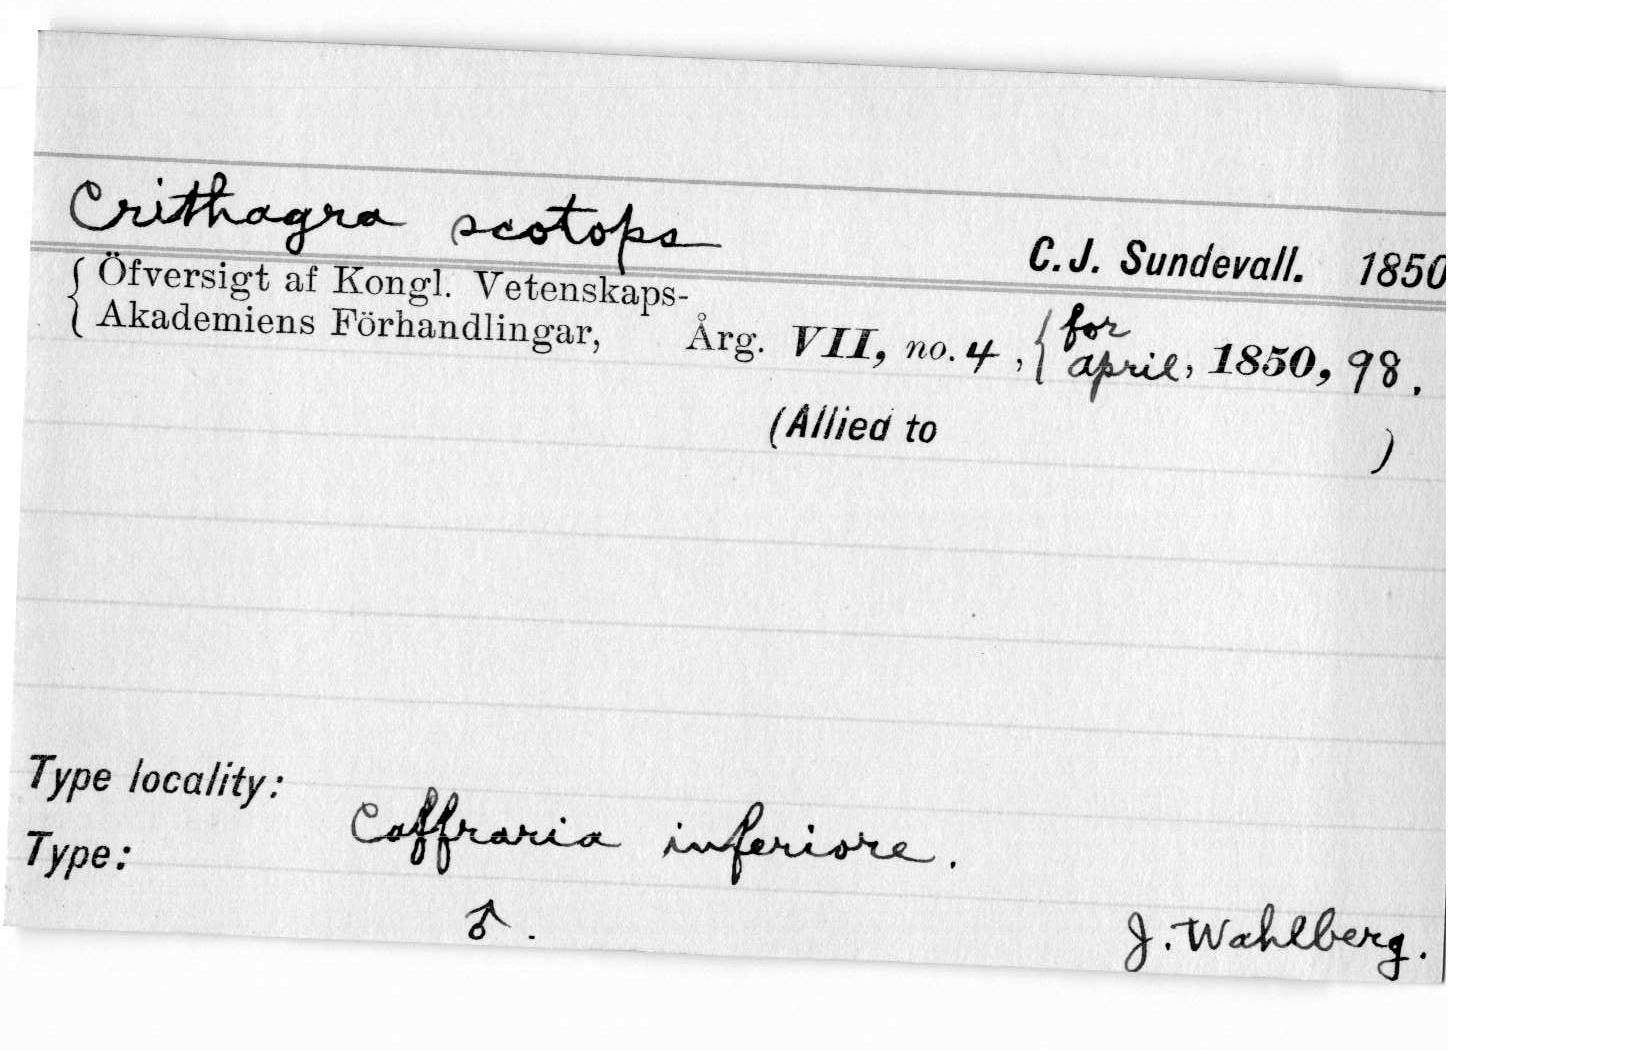 Crithagra scotops
C.J. Sundevall. 1850
{ Öfversigt af Kongl. Vetenskaps-
{ Akademiens Förhandlingar, Årg. VII, no. 4, { for april, 1850, 98.
(Allied to )
Type locality:
Caffraria inferiore.
Type:
♂.
J. Wahlberg.